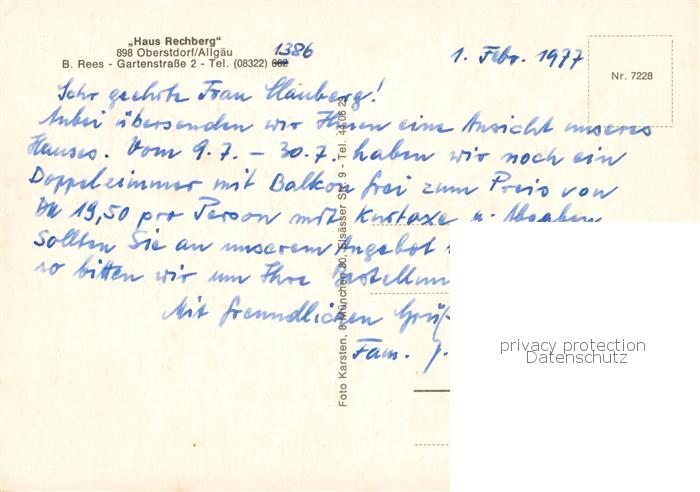 „Haus Rechberg“
898 Oberstdorf/Allgäu
B. Rees - Gartenstraße 2 - Tel. (08322) 1386
1. Febr. 1977
Nr. 7228
Sehr geehrte Frau Clauberg!
Anbei übersenden wir Ihnen eine Ansicht unseres
Hauses. Vom 9.7. – 30.7. haben wir noch ein
Doppelzimmer mit Balkon frei zum Preis von
DM 19,50 pro Person mit Kurtaxe u. Abgaben
Sollten Sie an unserem Angebot
so bitten wir um Ihre Bestellun
Mit freundlichen Grüß
Fam. J.
Foto Karsten, 8 München 80, Elsässer Str. 9 - Tel. 44 06 29
privacy protection
Datenschutz